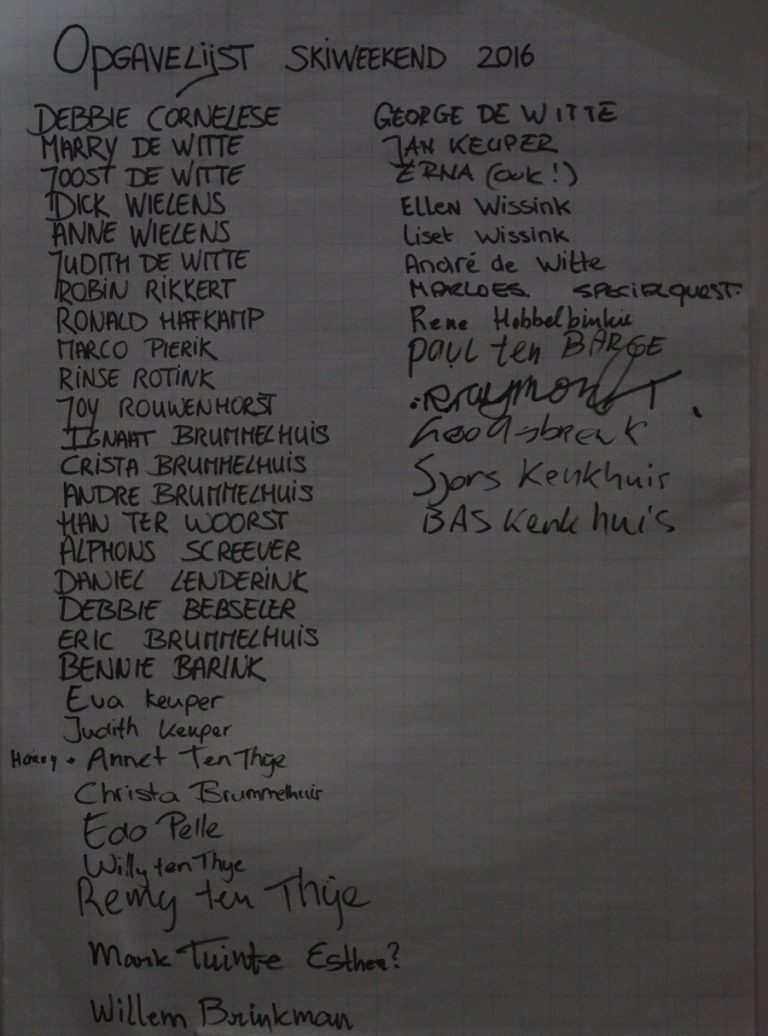 OPGAVELIJST SKIWEEKEND 2016
DEBBIE CORNELESE
MARRY DE WITTE
JOOST DE WITTE
DICK WIELENS
ANNE WIELENS
JUDITH DE WITTE
ROBIN RIKKERT
RONALD HAFKAMP
MARCO PIERIK
RINSE ROTINK
JOY ROUWENHORST
IGNAAT BRUMMELHUIS
CRISTA BRUMMELHUIS
ANDRE BRUMMELHUIS
HAN TER WOORST
ALPHONS SCREEVER
DANIEL LENDERINK
DEBBIE BEBSELER
ERIC BRUMMELHUIS
BENNIE BARINK
Eva Keuper
Judith Keuper
Harry + Annet Ten Thije
Christa Brummelhuis
Edo Pelle
Willy ten Thye
Remy ten Thije
Mark Tuinte Esther?
Willem Brinkman
GEORGE DE WITTE
JAN KEUPER
ERNA (OOK!)
Ellen Wissink
Liset Wissink
André de Witte
MARLOES SPECIALQUEST.
Rene Hobbelbinkie
Paul ten BARGE
Raymond
Sjors Kenkhuis
BAS Kenkhuis